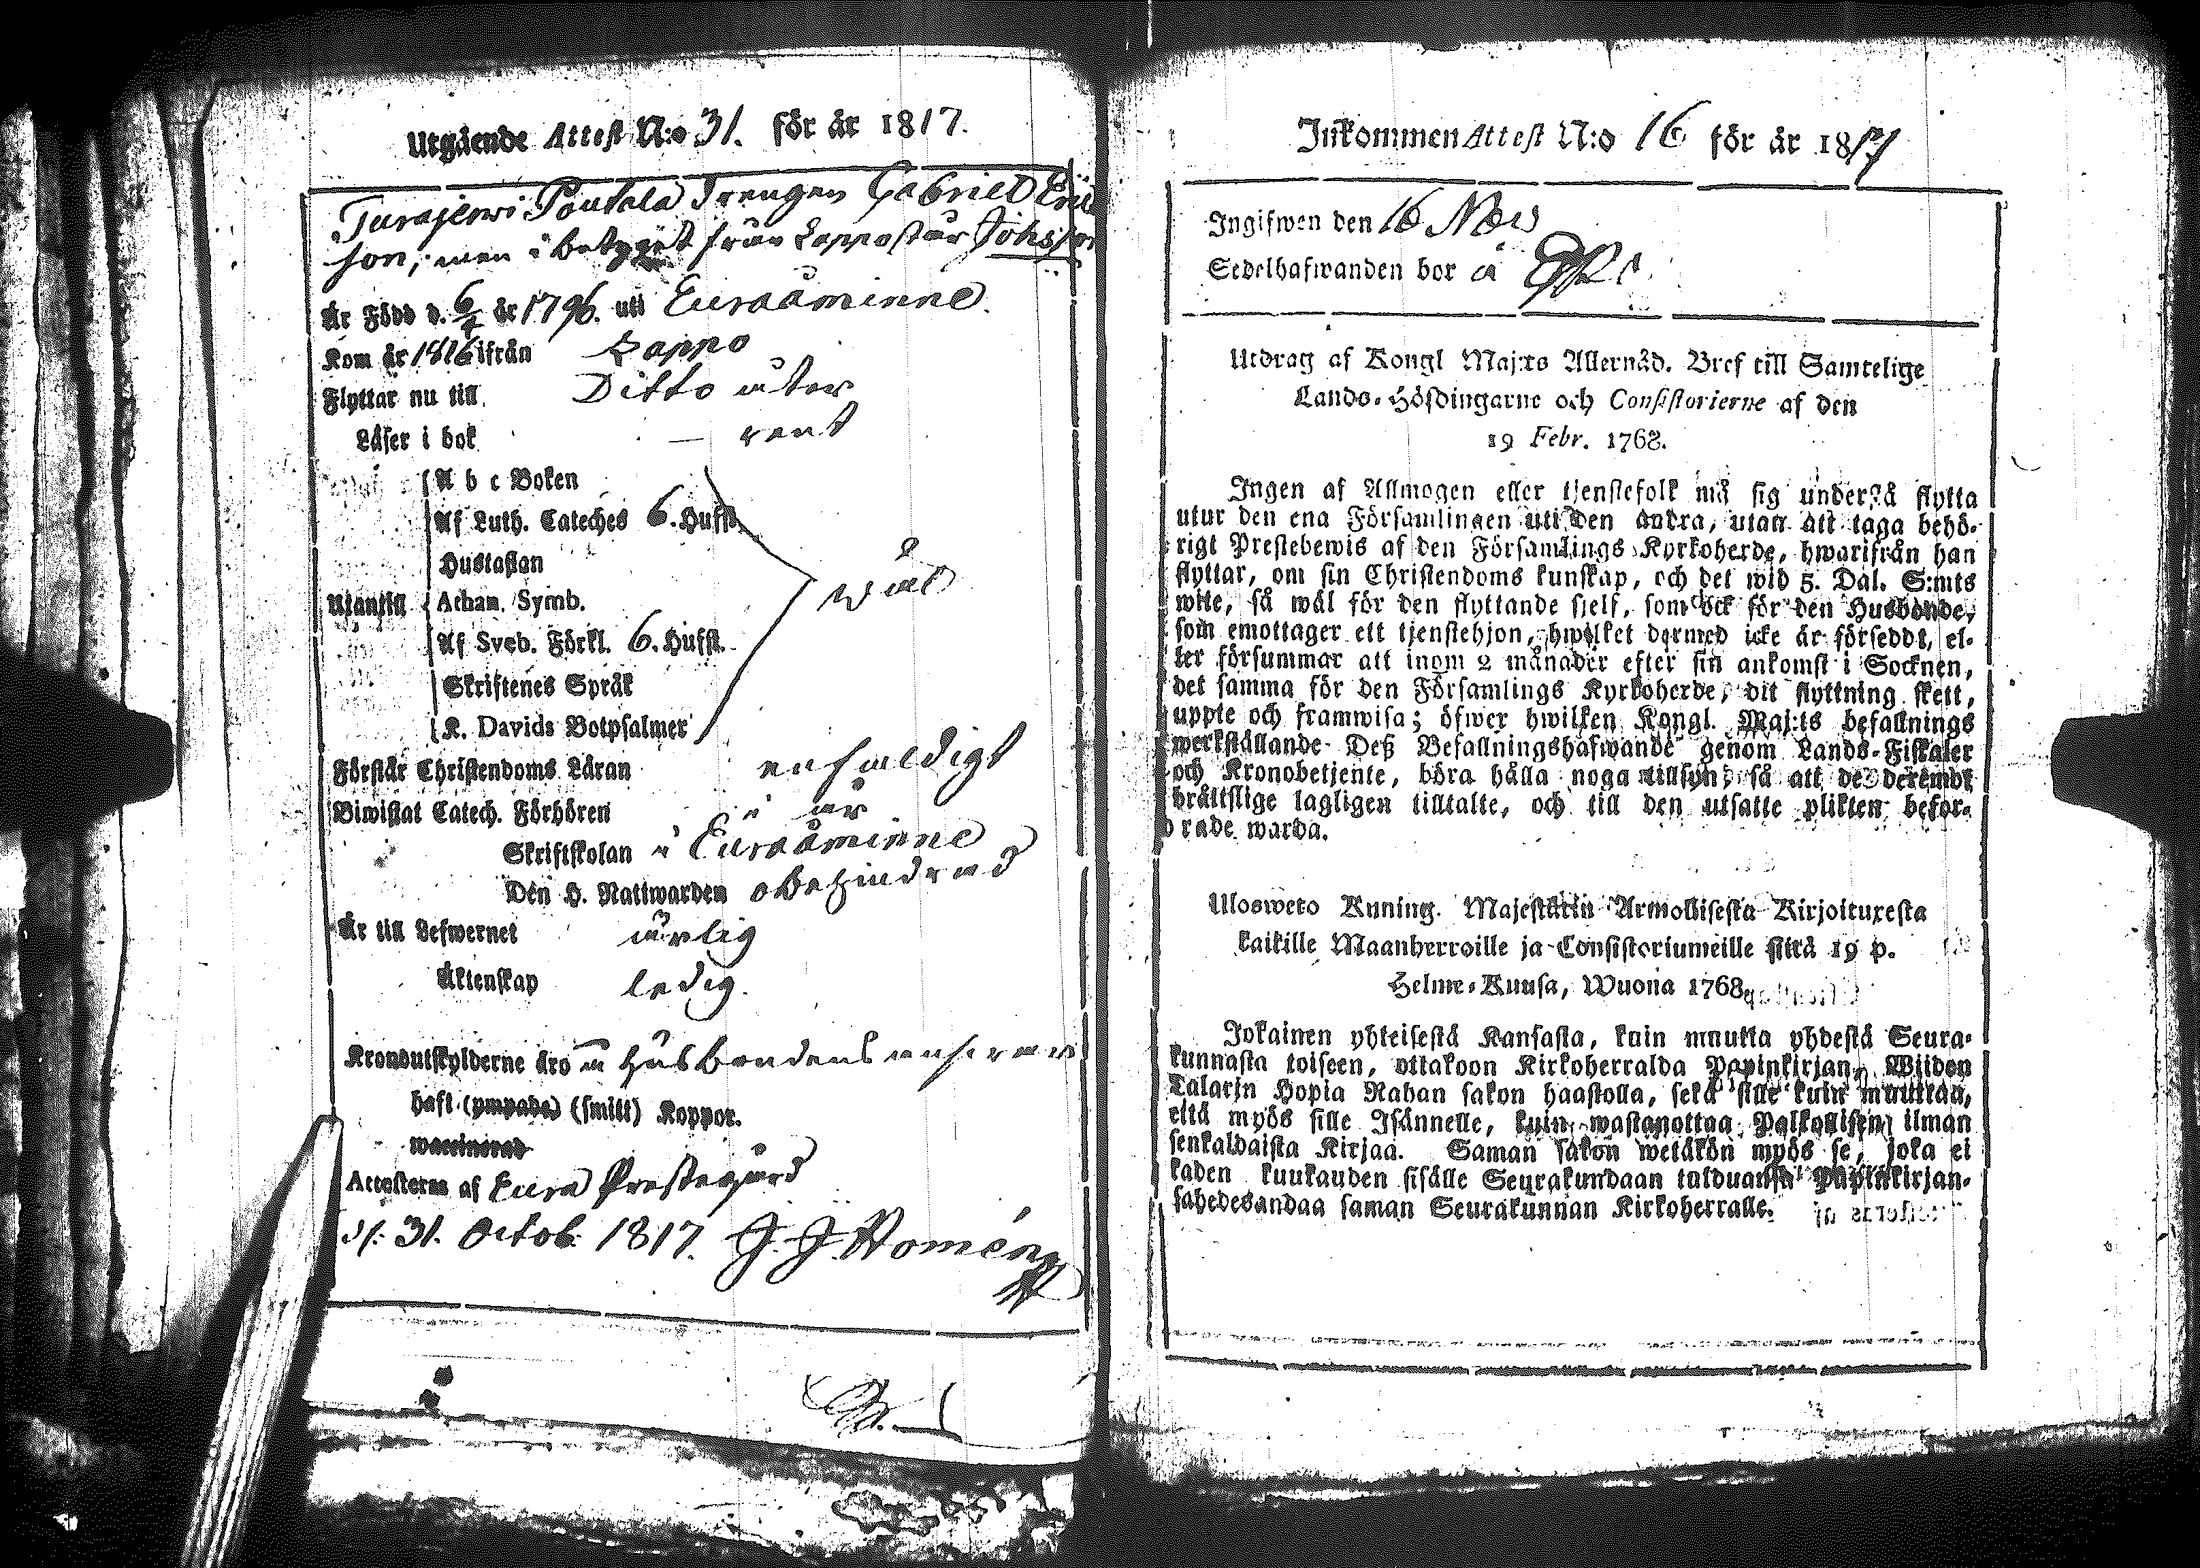 Utgående Attest N:o 31. för år 1817.
Turajerwi Pouttala Drengen Gabriel
son, men i betyget från Lappo står Johsson
Är Född d. 6/4 år 1796. uti Euraåminne.
Kom år 1816 ifrån Lappo
Flyttar nu till Ditto åter
Läser i bok — rent
A b c Boken
Af Luth. Cateches 6. Hufst.
Hustaflan
Utantill Athan. Symb. wäl
Af Sveb. Förkl. 6. Hufst.
Skriftenes Språk
K. Davids Botpsalmer
Förstår Christendoms Läran enfaldigt
Biwistat Catech. Förhören i år
Skriftskolan i Euraåminne
Den H. Nattwarden obehindrad
Är till Lefwernet ärlig
Äktenskap ledig.
Kronoutskylderne äro å Husbondens
haft (ympade) (smitt) Koppor.
waccinerad
Attesteras af Eura Prestegård
d. 31. Octob. 1817. J. J. Homén
Inkommen Attest N:o 16 för år 1817
Ingifwen den 16 Nov
Sedelhafwanden bor å
Utdrag af Kongl Maj:ts Allernåd. Bref till Samtelige
Lands-Höfdingarne och Consistorierne af den
19 Febr. 1768.
Ingen af Allmogen eller tjenstefolk må sig understå flytta
utur den ena Församlingen uti den andra, utan att taga behö-
rigt Prestebewis af den Församlings Kyrkoherde, hwarifrån han
flyttar, om sin Christendoms kunskap, och det wid 5. Dal. S:mts
wite, så wäl för den flyttande sjelf, som ock för den Husbonde,
som emottager ett tjenstehjon, hwilket dermed icke är förseddt, el-
ler försummar att inom 2 månader efter sin ankomst i Socknen,
det samma för den Församlings Kyrkoherde, dit flyttning skett,
uppte och framwisa; öfwer hwilken Kongl. Maj:ts befallnings
werkställande Deß Befallningshafwande genom Lands-Fiskaler
och Kronobetjente, böra hålla noga tillsyn, så att de deremot
bråttslige lagligen tilltalte, och till den utsatte plikten befor-
drade warda.
Ulosweto Kuning. Majestätin Armollisesta Kirjoituxesta
kaikille Maanherroille ja Consistoriumeille siitä 19 p.
Helme-Kuusa, Wuona 1768.
Jokainen yhteisestä Kansasta, kuin muutta yhdestä Seura-
kunnasta toiseen, ottakoon Kirkoherralda Papinkirjan, Wiiden
Talarin Hopia Rahan sakon haastolla, sekä sille kuin muuttaa,
että myös sille Isännelle, kuin wastanottaa Palkollisen ilman
senkaldaista Kirjaa. Saman sakon wetäkön myös se, joka ei
kaden kuukauden sisälle Seurakundaan tulduansa Papinkirjan-
sa edesandaa saman Seurakunnan Kirkoherralle.